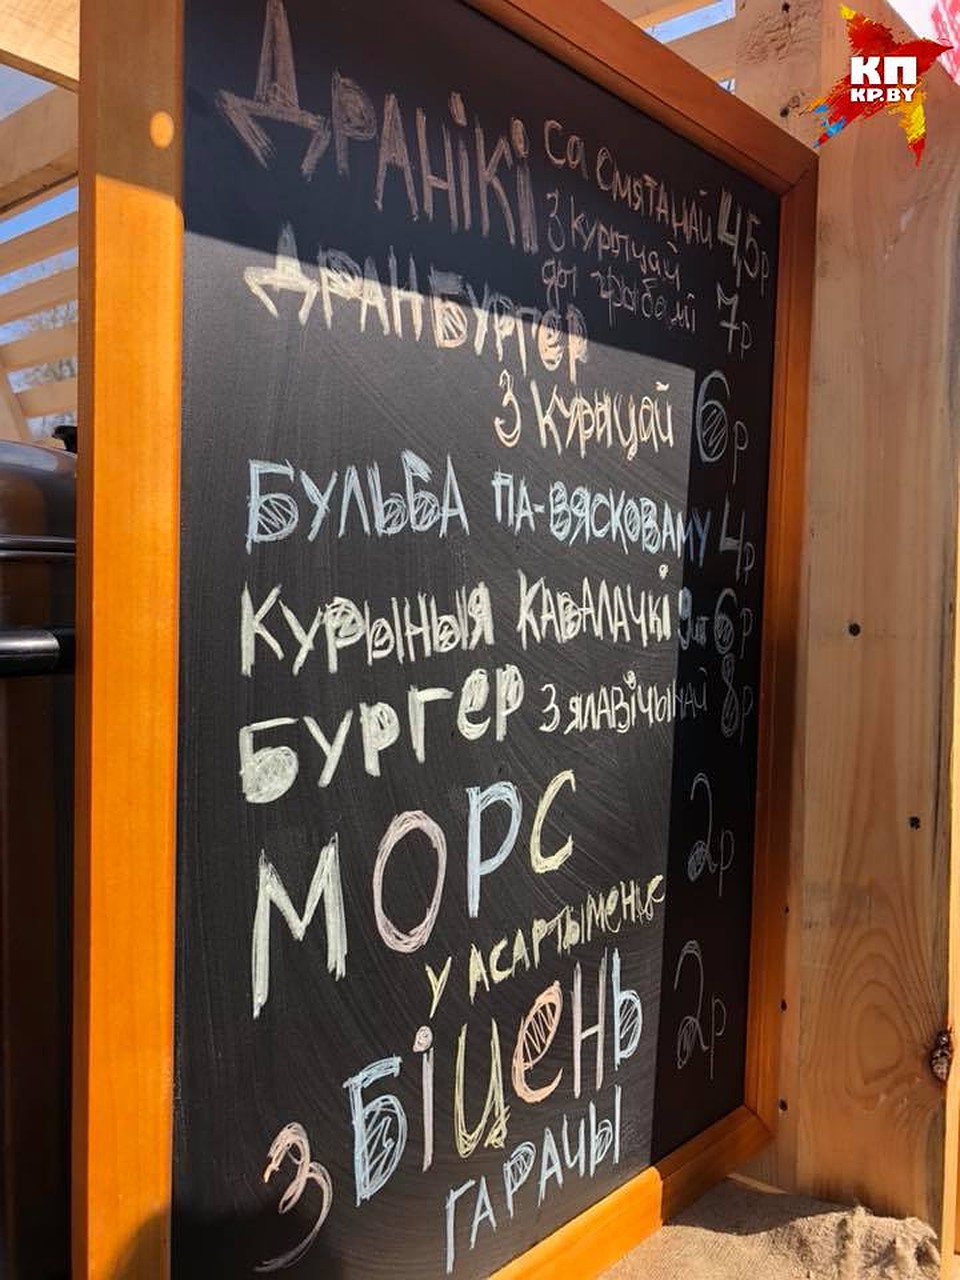 КП
KP.BY
ДРАНІКІ са смятанай 4,5р
з курыцай
ды грыбамі 7р
ДРАНБУРГЕР
з курыцай 6р
БУЛЬБА ПА-ВЯСКОВАМУ 4р
КУРЫНЫЯ КАВАЛАЧКІ 9шт 6р
БУРГЕР З ЯЛАВІЧЫНАЙ 8р
МОРС 2р
У АСАРТЫМЕНЦЕ
ЗБІЦЕНЬ 2р
ГАРАЧЫ